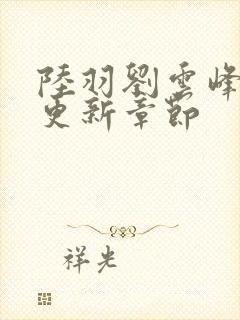 陸羽劉雲峰
更新章節
祥光